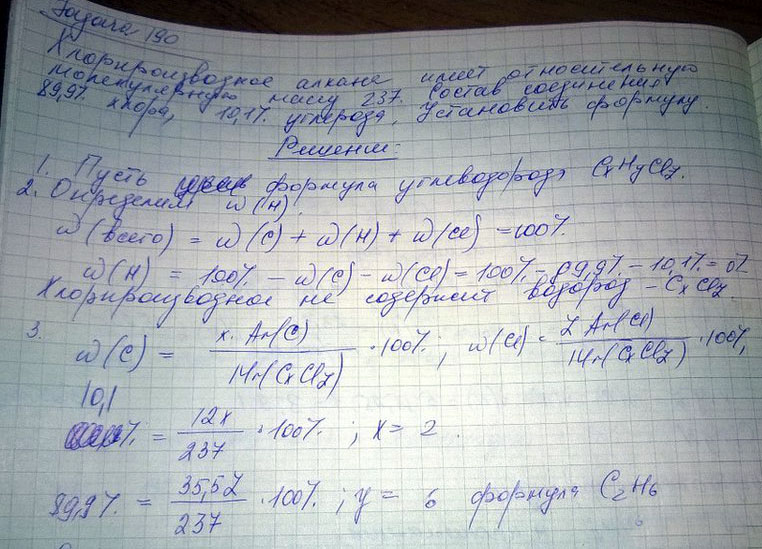 Задача 190
Хлорпроизводное алкана имеет относительную
молекулярную массу 237. Состав соединения
89,9% хлора, 10,1% углерода. Установить формулу.
Решение:
1. Пусть формула углеводорода CxHyClz.
2. Определим w(H).
w(всего) = w(C) + w(H) + w(Cl) = 100%.
w(H) = 100% - w(C) - w(Cl) = 100% - 89,9% - 10,1% = 0%
Хлорпроизводное не содержит водород - CxClz
3. w(C) = x·Ar(C) / Mr(CxClz) · 100%; w(Cl) = z Ar(Cl) / Mr(CxClz) · 100%,
10,1
% = 12x / 237 · 100%; x = 2.
89,9% = 35,5z / 237 · 100%; y = 6 формула C2H6